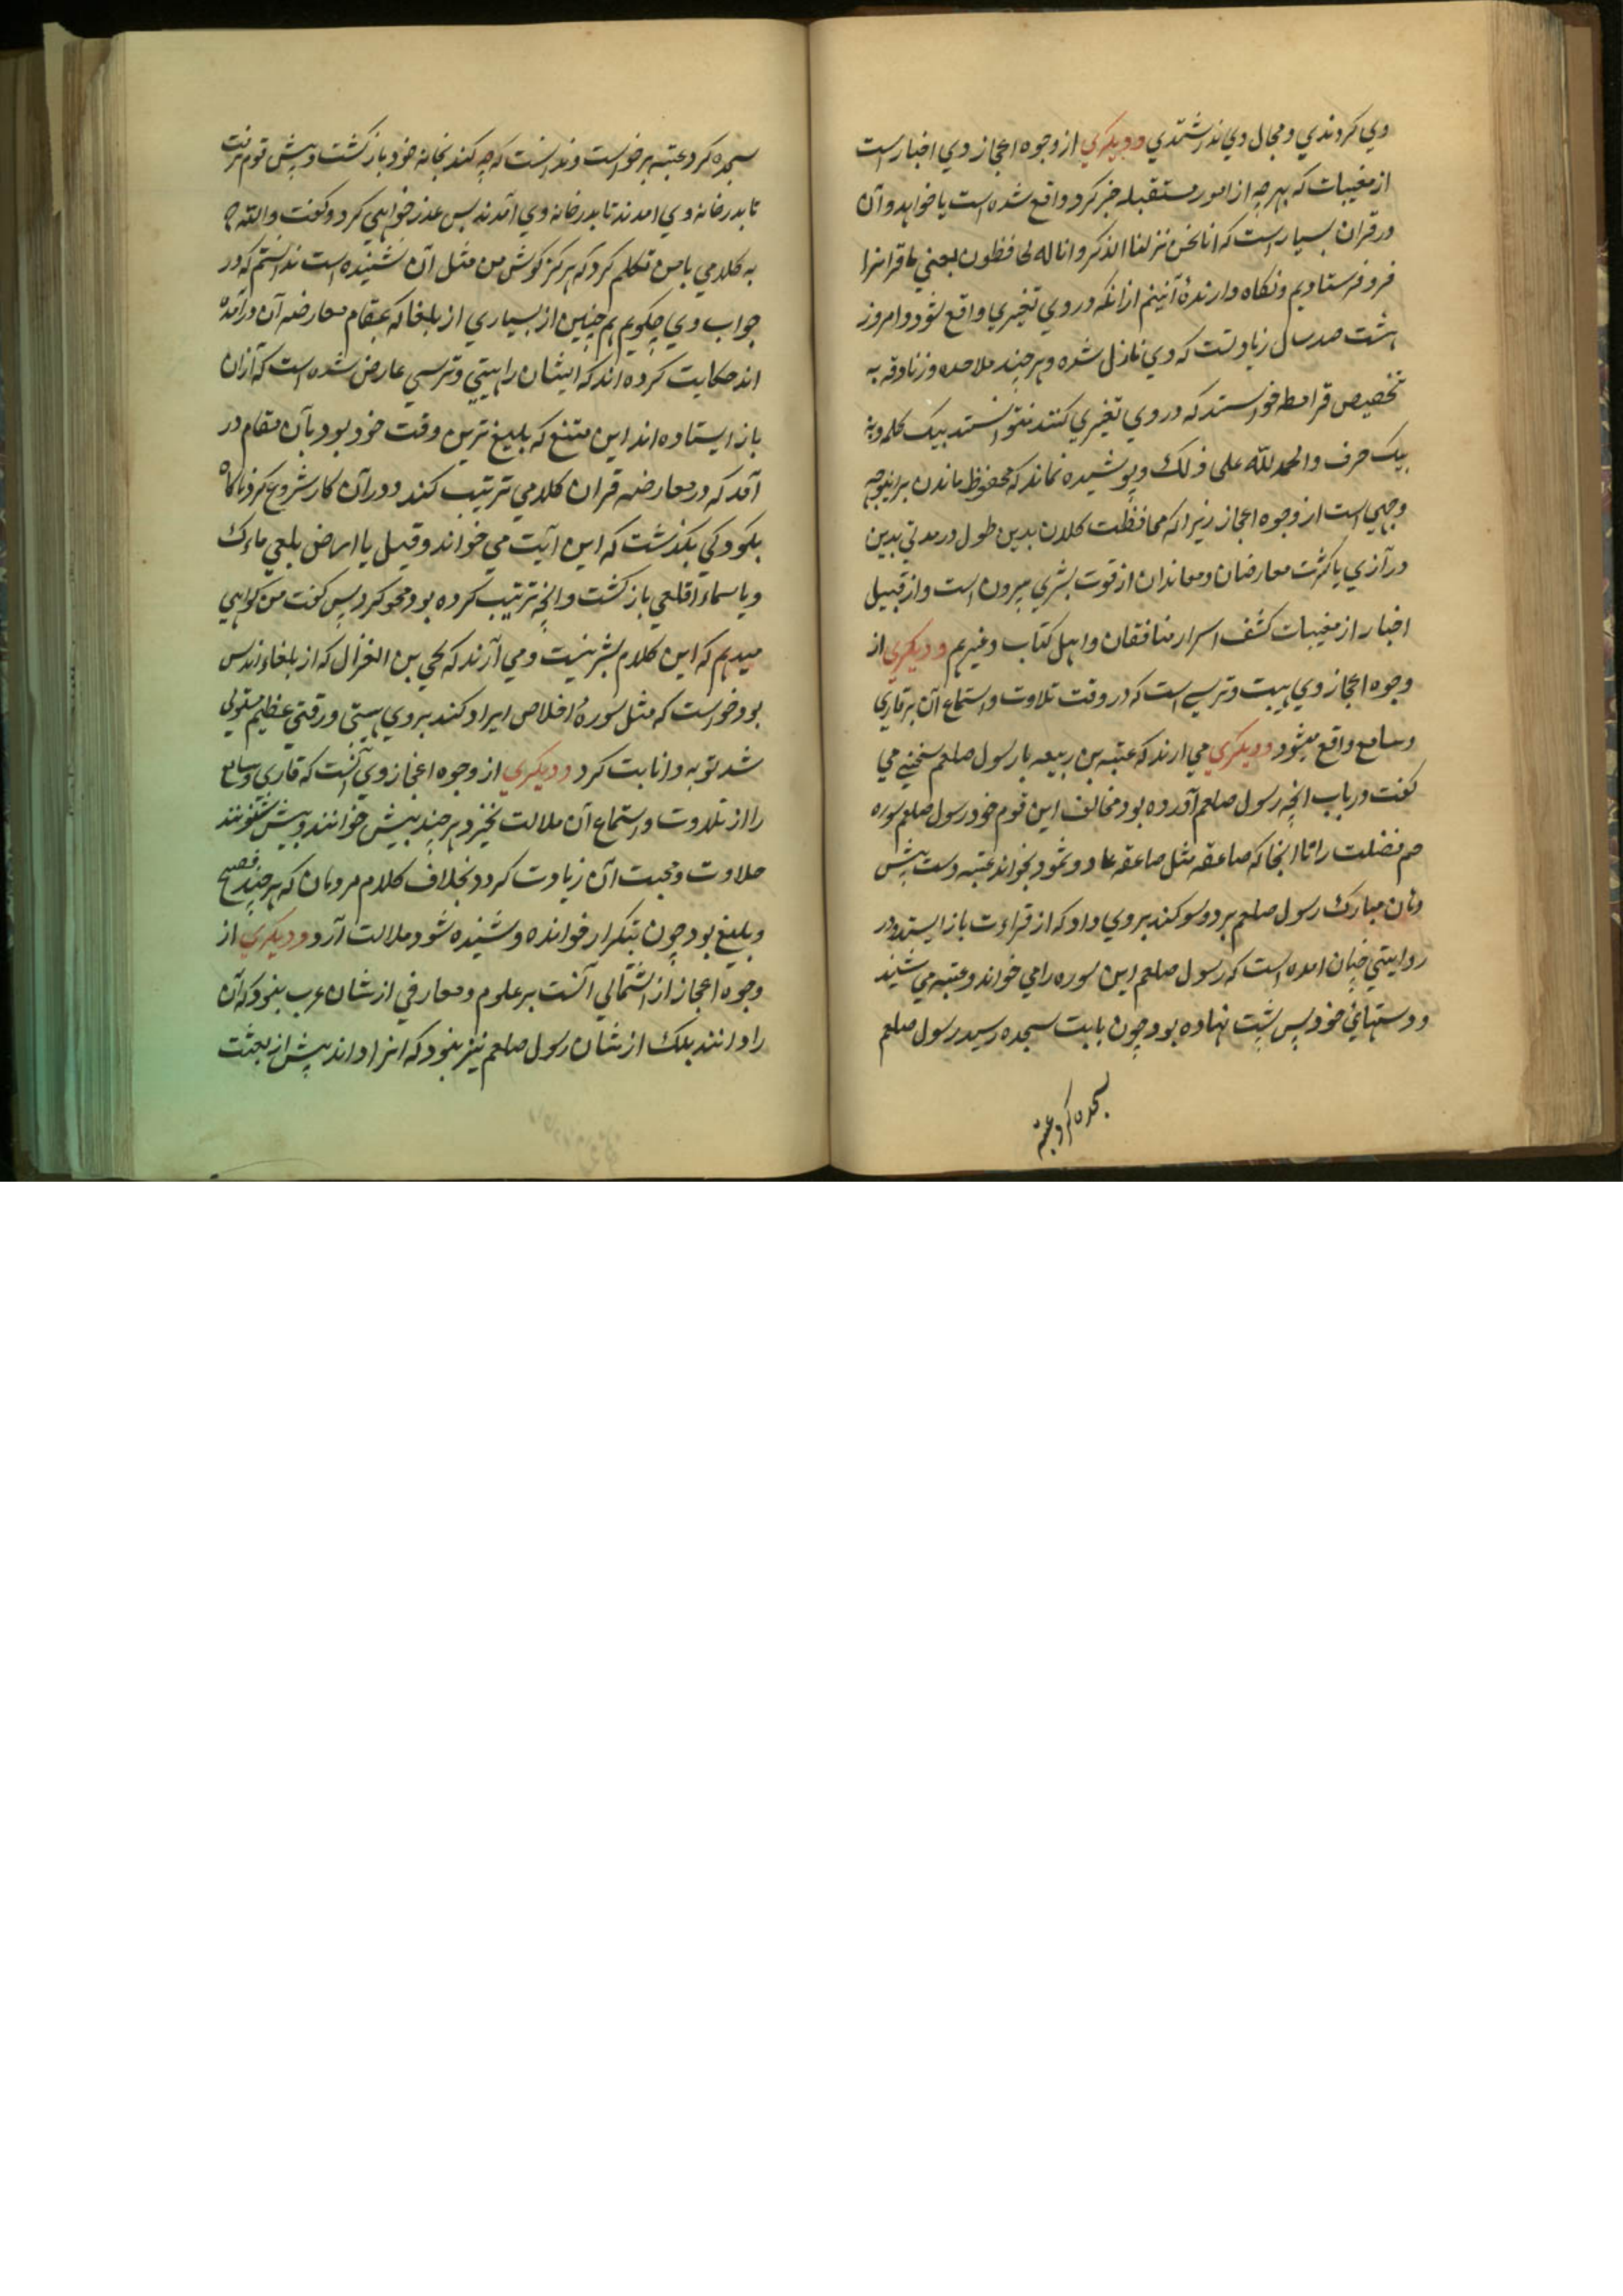 وي كردندي و مجال وي نداشتندي و ديكري از وجوه اعجاز وي اخبار است
از مغيبات كه بهر چه از امور مستقبله خبر كرد واقع شده است يا خواهد و آن
در قران بسيار است كه انا نحن نزلنا الذكر و انا له لحافظون يعني ما قرانرا
فرو فرستاديم و نكاه دارنده آنيم از انكه در وي تغيري واقع شود و امروز
هشت صد سال زيادتست كه وي نازل شده و هر چند ملاحده و زنادقه به
تخصيص قرامطه خواستند كه در وي تغيري كنند نتوانستند بيك كلمه و به
بيك حرف و الحمد لله على ذلك و پوشيده نماند كه محفوظ ماندن برينوجه
وجهي است از وجوه اعجاز زيرا كه محافظت كلان بدين طول در مدتي بدين
درآزي با كثرت معارضان و معاندان از قوت بشري بيرون است و از قبيل
اخبار از مغيبات كشف اسرار منافقان و اهل كتاب و غيرهم و ديكري از
وجوه اعجاز وي هيبت و ترسي است كه در وقت تلاوت و استماع آن بر قاري
و سامع واقع ميشود و ديكري مي ارند كه عتبه بن ربيعه با رسول صلعم سخني مي
كفت در باب انچه رسول صلعم آورده بود مخالف اين قوم خود رسول صلعم سوره
حم فصلت را تا انجا كه صاعقه مثل صاعقه عاد و ثمود بخواند عتبه دست پيش
دهان مبارك رسول صلعم برد و سوكند بر وي داد كه از قراءت باز ايستد و در
روايتي چنان امده است كه رسول صلعم اين سوره را مي خواند و عتبه مي شنيد
و دستهائ خود پس پشت نهاده بود چون بايت سجده رسيد رسول صلعم
سجده كرد عتبه
سجده كرد عتبه برخواست و ندانست كه چه كند بخانه خود باز كشت و پيش قوم نرفت
تا بدر خانه وي امدند تا بدر خانه وي آمدند پس عذر خواهي كرد و كفت و الله
به كلامي با من تكلم كرد كه هركز كوش من مثل آن نشنيده است ندانستم كه در
جواب وي چكويم هم چنين از بسياري از بلغا كه بمقام معارضه آن در آمده
اند حكايت كرده اند كه ايشان را هيبتي و ترسي عارض شده است كه آزان
باز ايستاده اند ابن مقنع كه بليغ ترين وقت خود بود بآن مقام در
آمد كه در معارضه قران كلامي ترتيب كند و در آن كار شروع كرد ناكاه
بكودكي بكذشت كه اين آيت مي خواند و قيل يا ارض بلعي ماءك
و يا سماء اقلعي باز كشت و انچه ترتيب كرده بود محو كرد پس كفت من كواهي
ميدهم كه اين كلام بشر نيست و مي آرند كه يحي بن الغزال كه از بلغاء اندلس
بود خواست كه مثل سورهٔ اخلاص ايراد كند بر وي هيبتي و رقتي عظيم مستولي
شد توبه و انابت كرد و ديكري از وجوه اعجاز وي آنست كه قاري و سامع
را از تلاوت و استماع آن ملالت نخيزد هر چند بيش خوانند و بيش شنوند
حلاوت و محبت آن زيادت كردد بخلاف كلام مردمان كه هر چند فصيح
و بليغ بود چون بتكرار خوانده و شنيده شود ملالت آرد و ديكري از
وجوه اعجاز از اشتمالي آنست بر علوم و معارفي از شان عرب نبود كه آن
را دانند بلك از شان رسول صلعم نيز نبود كه انرا داند پيش از بعثت